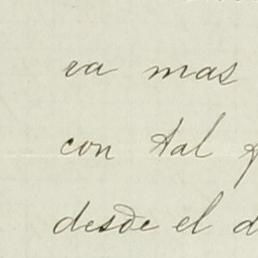 va mas
con tal
desde el d